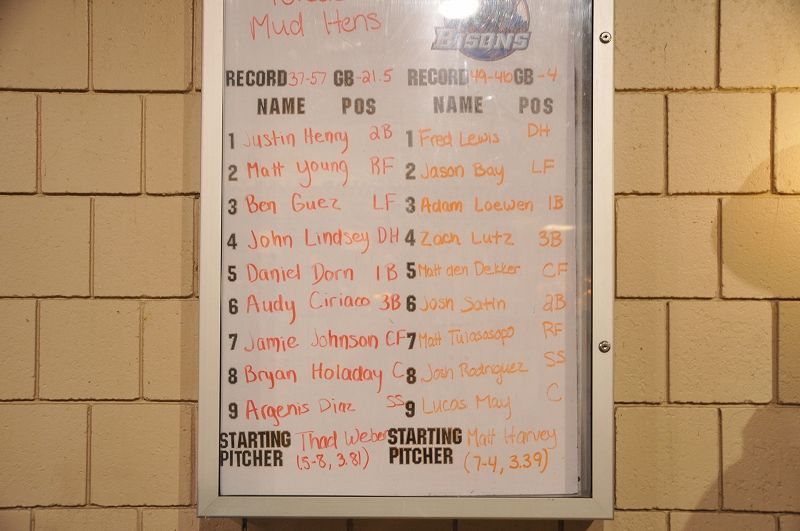 Mud Hens
BISONS
RECORD 37-57 GB -21.5 RECORD 49-46 GB -4
NAME POS NAME POS
1 Justin Henry 2B 1 Fred Lewis DH
2 Matt Young RF 2 Jason Bay LF
3 Ben Guez LF 3 Adam Loewen 1B
4 John Lindsey DH 4 Zach Lutz 3B
5 Daniel Dorn 1B 5 Matt den Dekker CF
6 Audy Ciriaco 3B 6 Josh Satin 2B
7 Jamie Johnson CF 7 Matt Tuiasosopo RF
8 Bryan Holaday C 8 Josh Rodriguez SS
9 Argenis Diaz SS 9 Lucas May C
STARTING PITCHER Thad Weber STARTING PITCHER Matt Harvey
(5-8, 3.81) (7-4, 3.39)